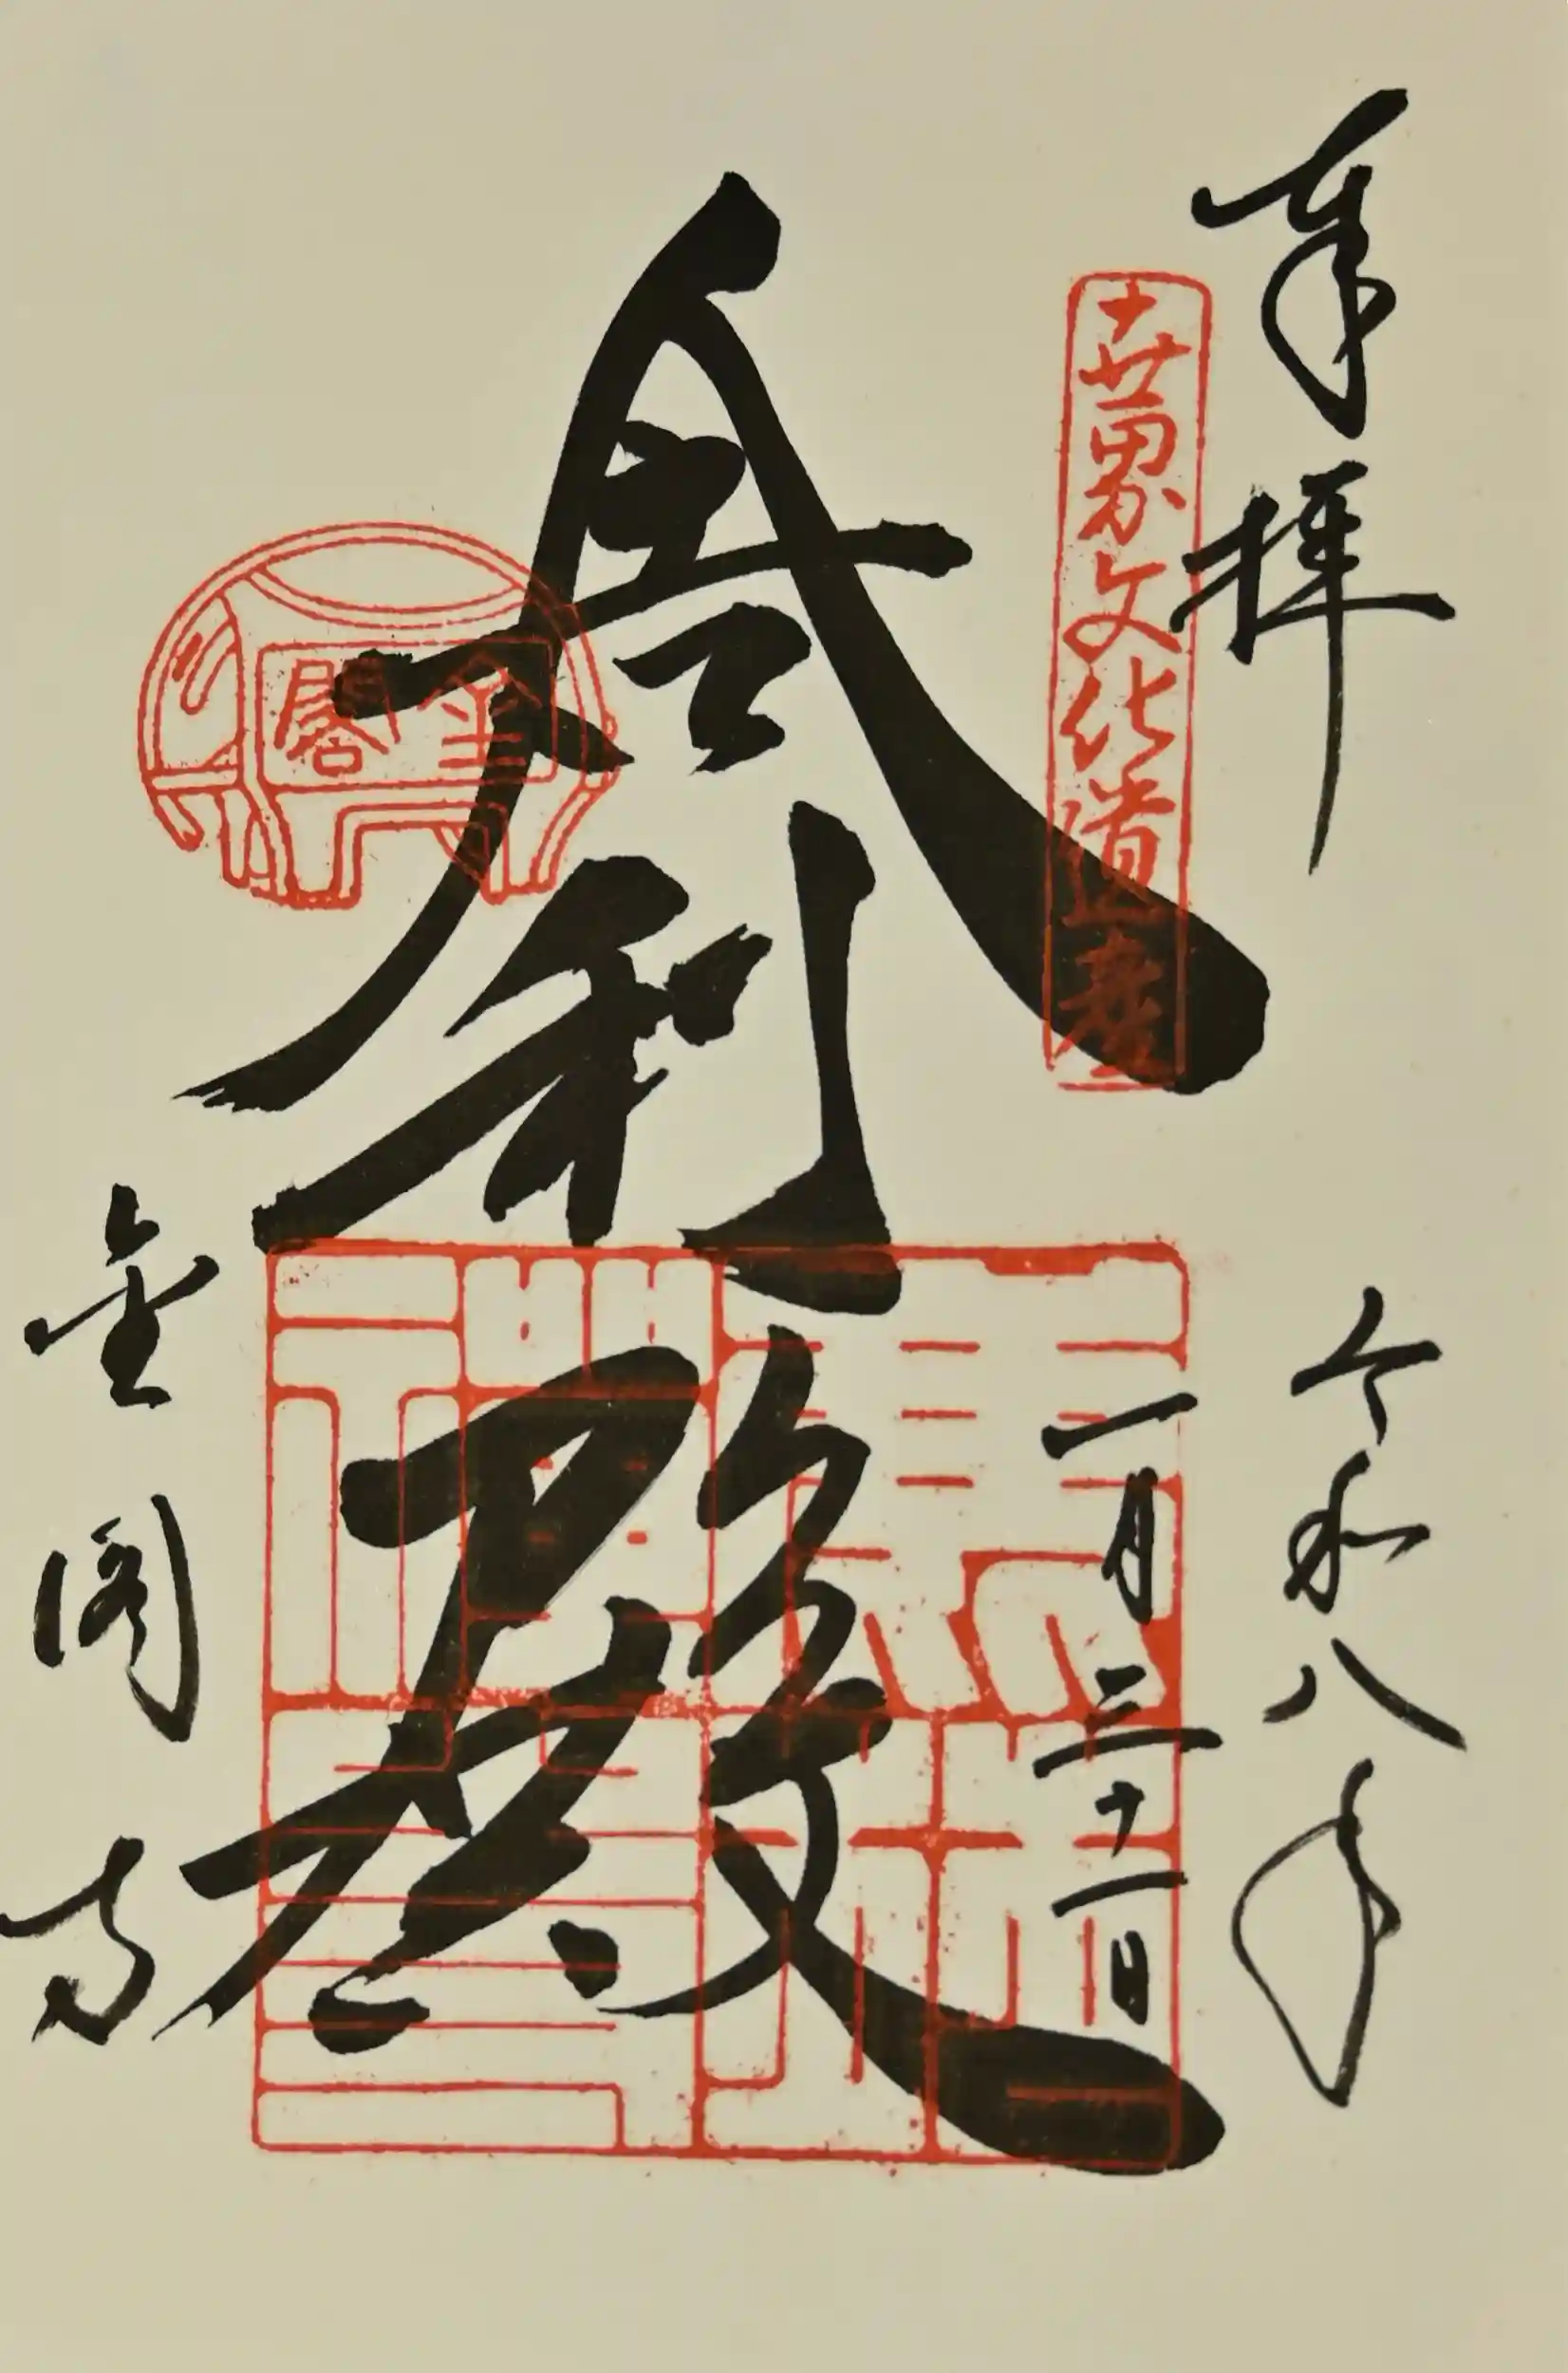 奉拝
令和八年
一月三十一日
世界文化遺産
舎利殿
金閣
金閣寺